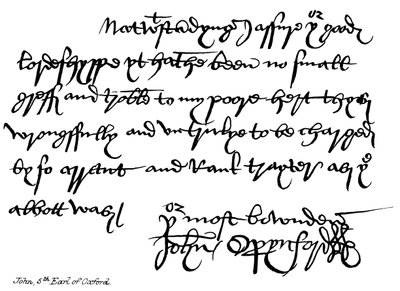 Notwtstādyng I assure yor good
lordeshyppe yt hathe been no small
greff and troble to my poore hert thys
wrongffully and untrulye to be charged
by so arrant and rank trayter as ye
abbott was
yor most bownden
John Oxynford
John, 5th Earl of Oxford.